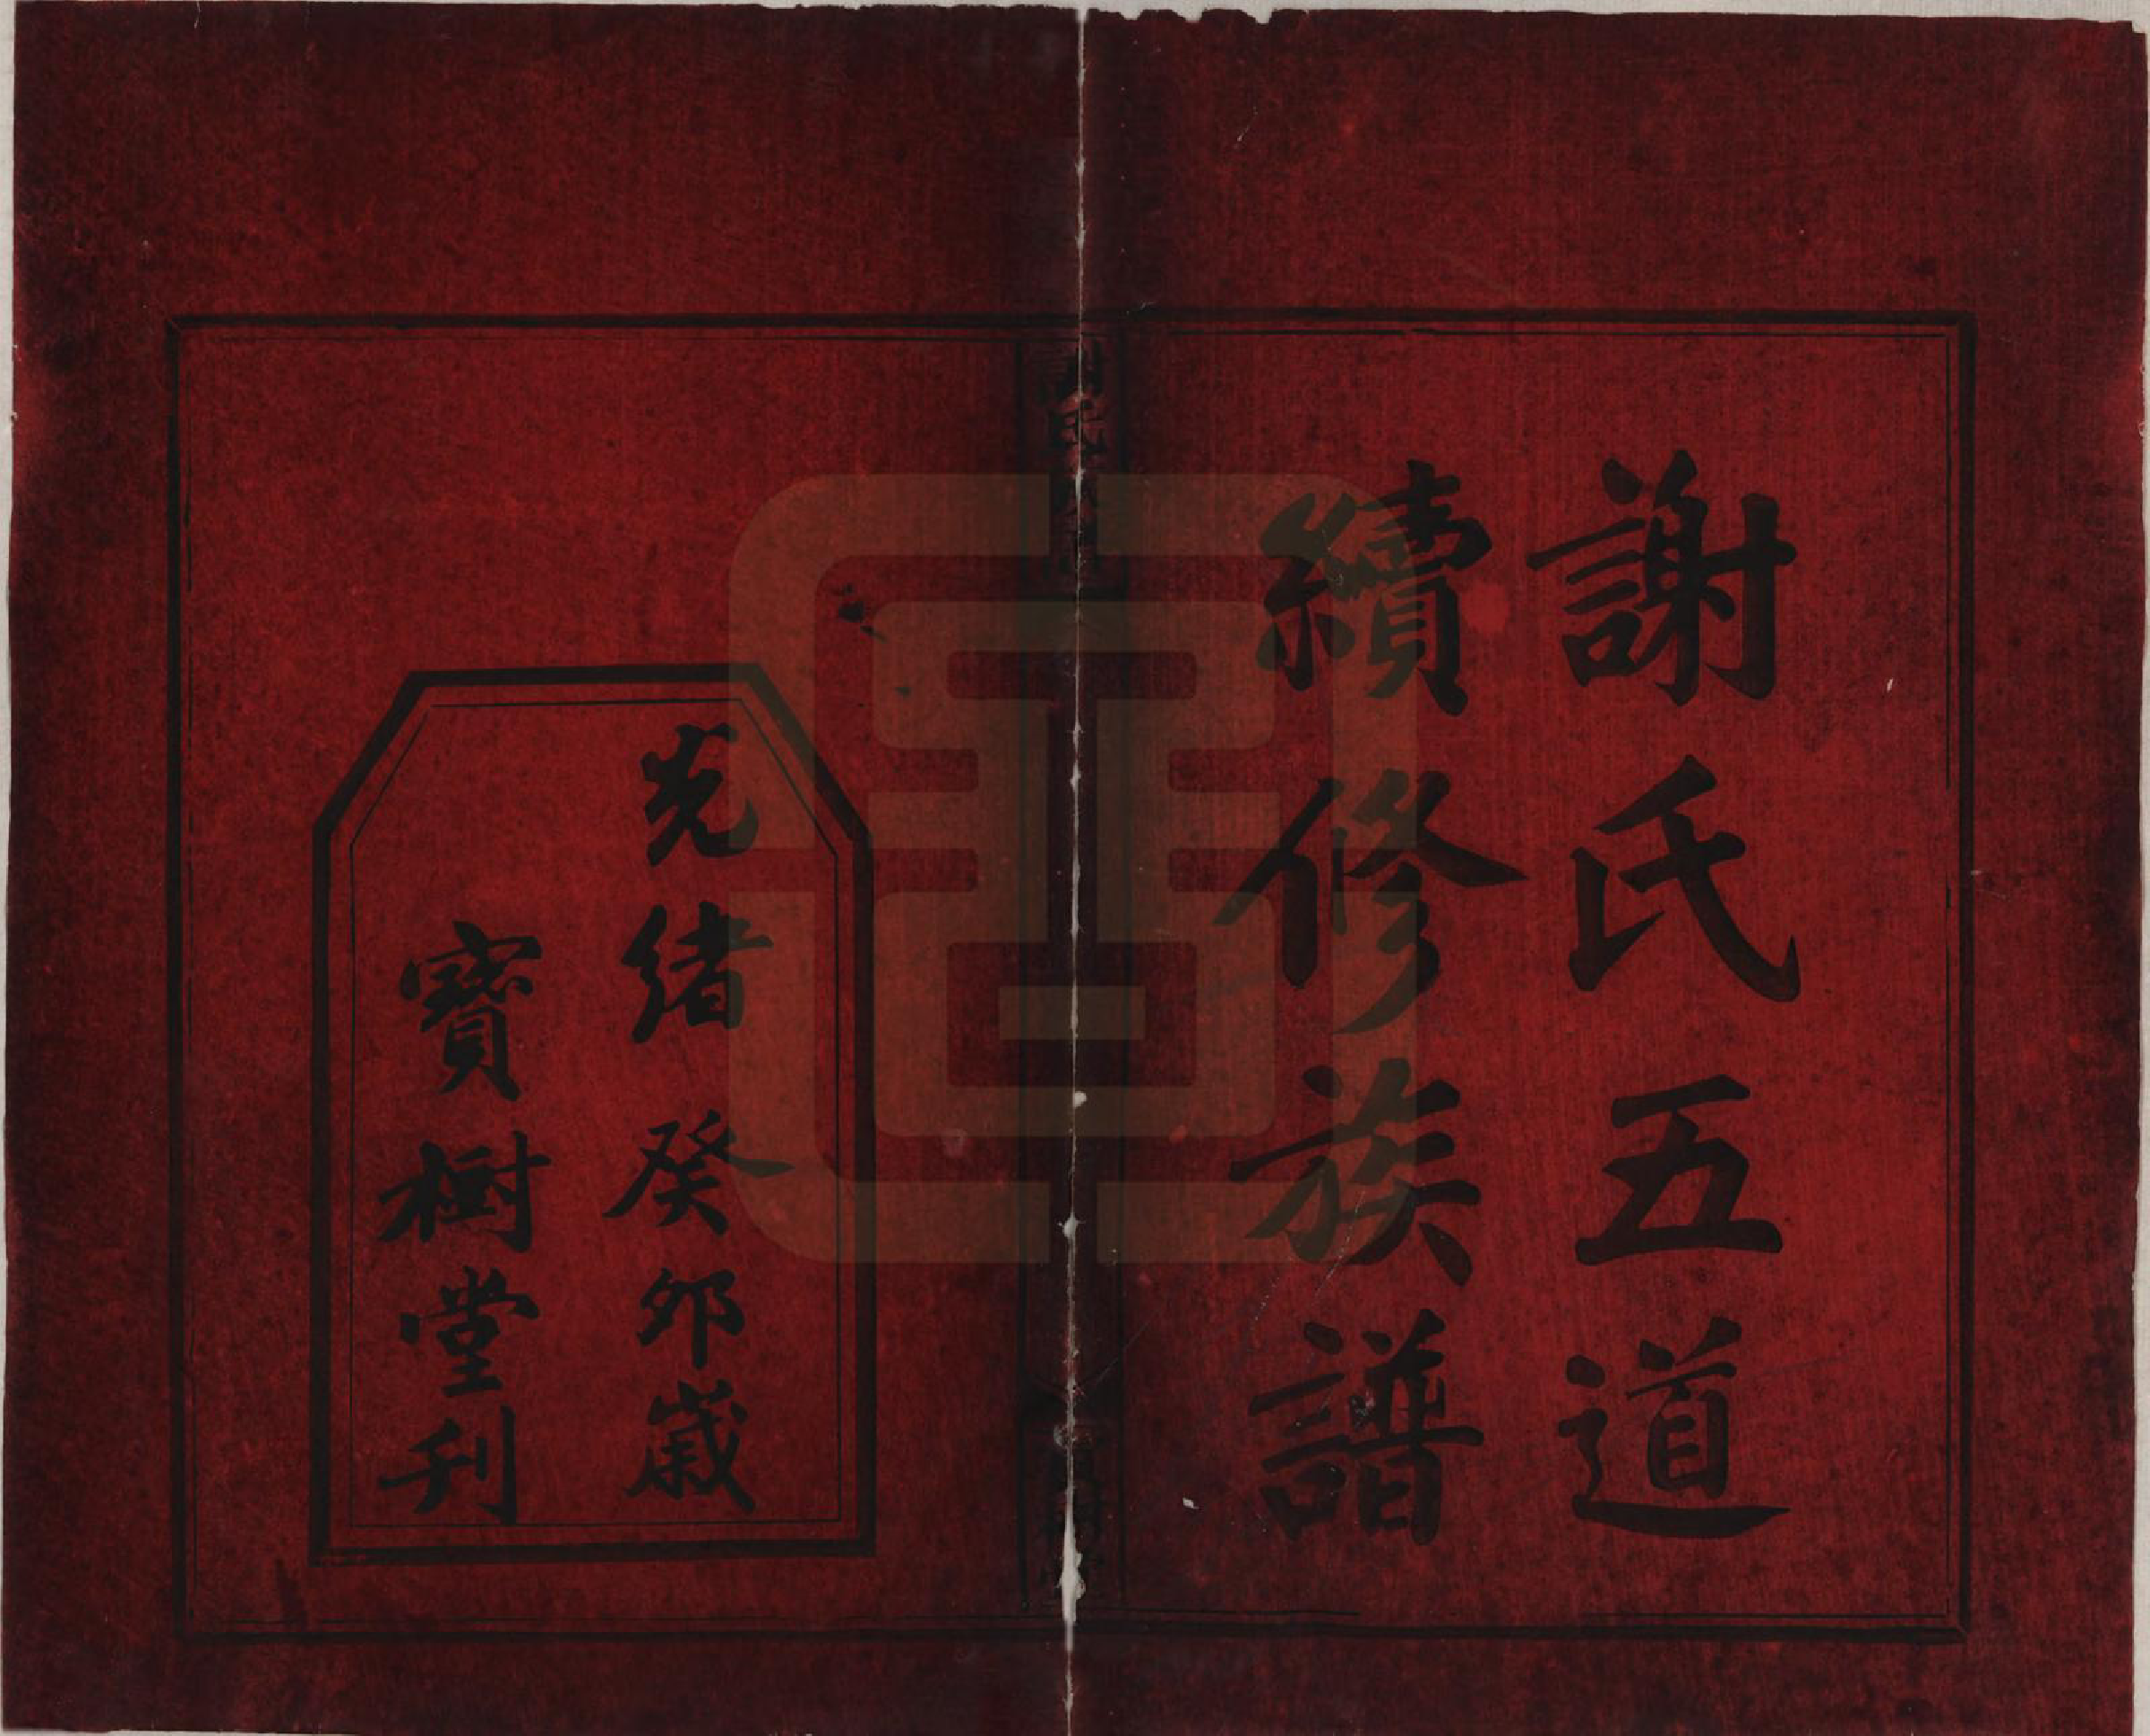 謝氏五道
續修族譜
光緒癸卯歲
寳樹堂刋